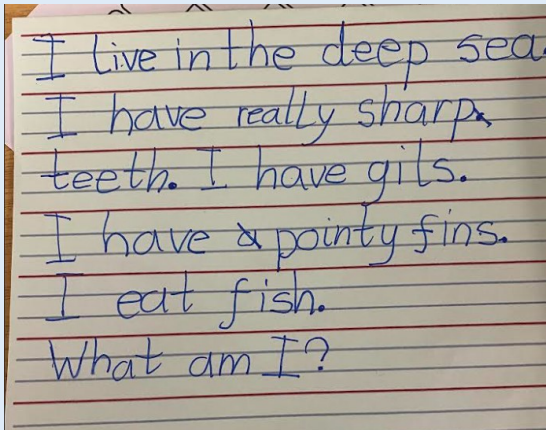 I live in the deep sea.
I have really sharp
teeth. I have gils.
I have pointy fins.
I eat fish.
What am I?